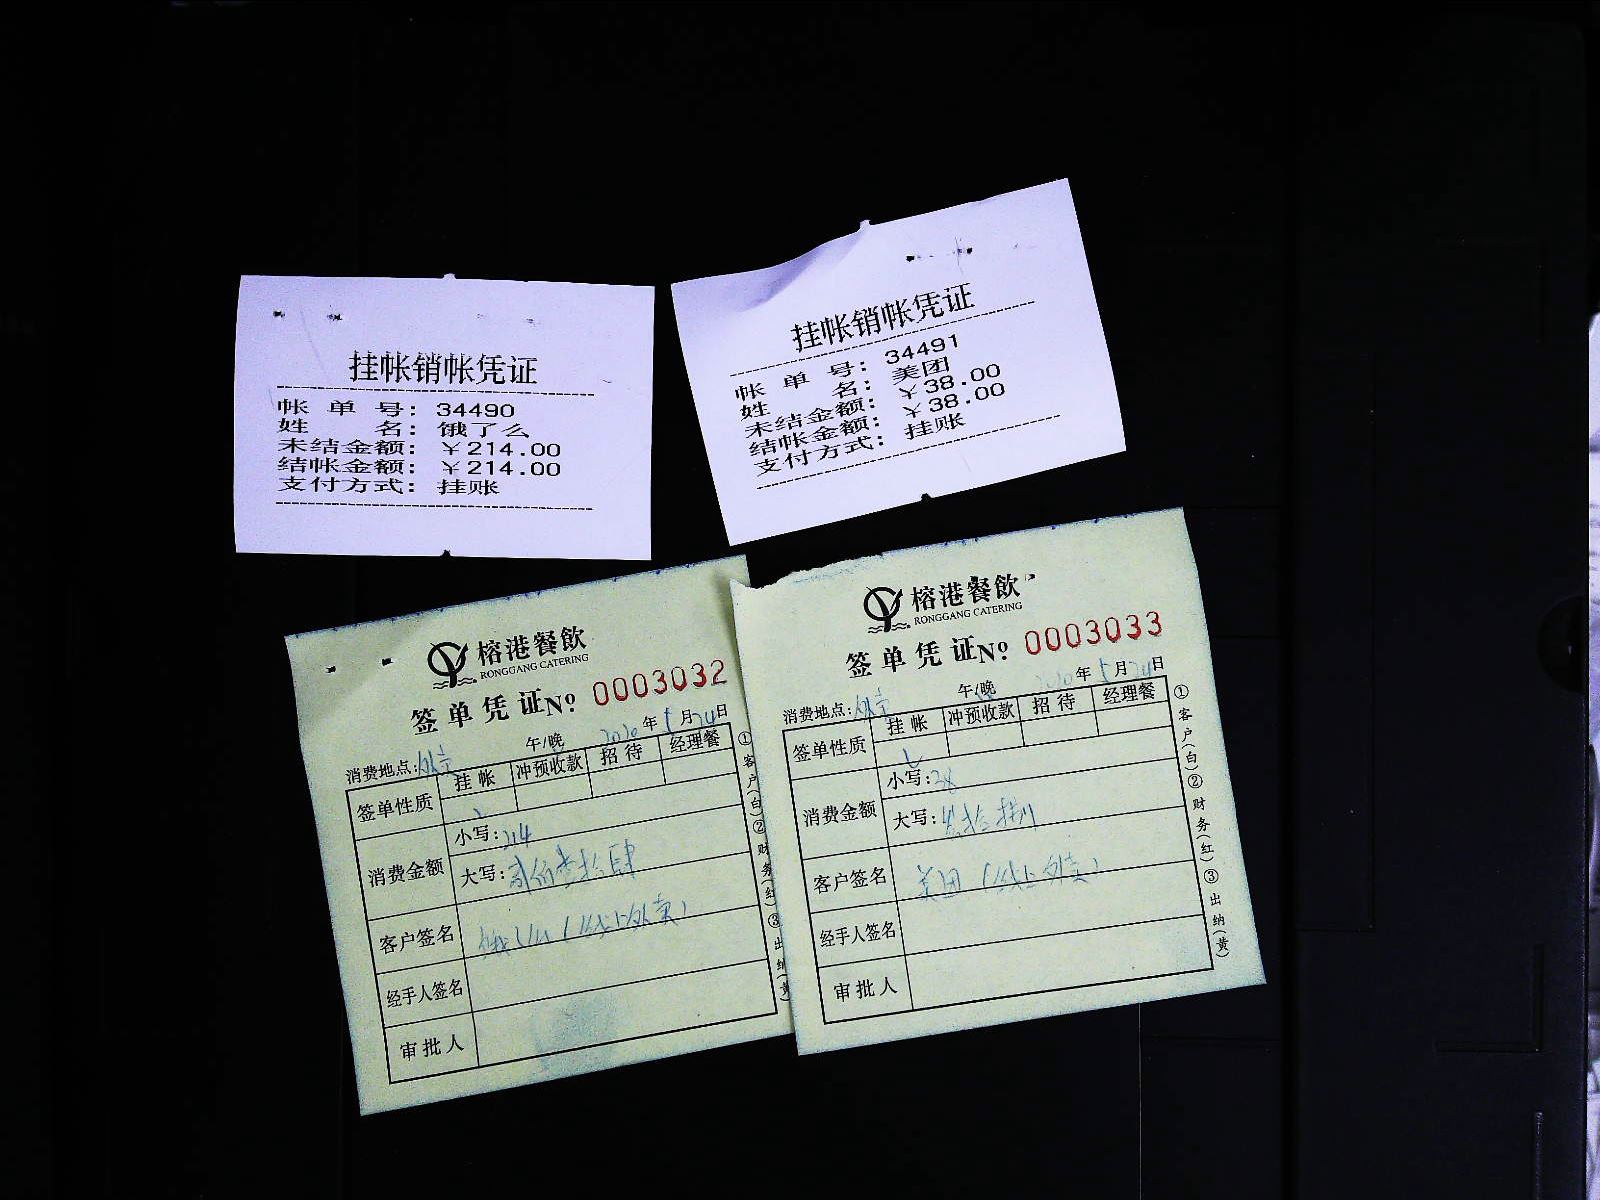 挂帐销帐凭证
帐单号：34490
姓名：饿了么
未结金额：￥214.00
结帐金额：￥214.00
支付方式：挂账
挂帐销帐凭证
帐单号：34491
姓名：美团
未结金额：￥38.00
结帐金额：￥38.00
支付方式：挂账
榕港餐飲
RONGGANG CATERING
签单凭证No 0003032
午/晚 2020年5月24日
消费地点：外卖
签单性质 挂帐 冲预收款 招待 经理餐
消费金额 小写：214
大写：贰佰壹拾肆
客户签名 饿了么（线上外卖）
经手人签名
审批人
①客户（白）②财务（红）③出纳（黄）
榕港餐飲
RONGGANG CATERING
签单凭证No 0003033
午/晚 2020年5月24日
消费地点：外卖
签单性质 挂帐 冲预收款 招待 经理餐
消费金额 小写：38
大写：叁拾捌
客户签名 美团（线上外卖）
经手人签名
审批人
①客户（白）②财务（红）③出纳（黄）